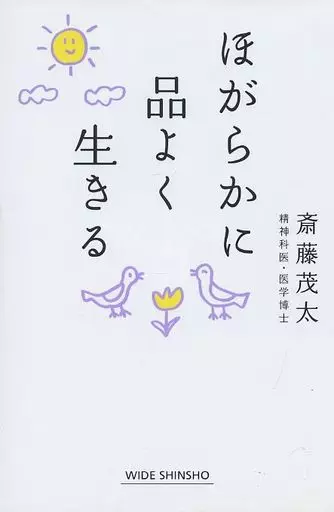 ほがらかに
品よく
生きる
斎藤茂太
精神科医・医学博士
WIDE SHINSHO